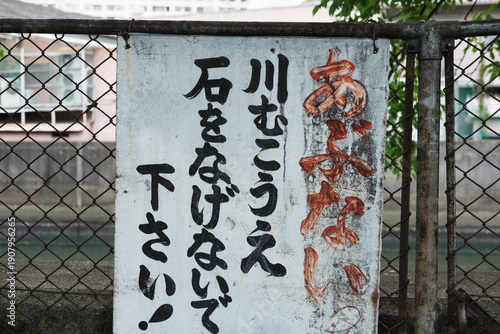 あぶない
川むこうえ
石をなげないで
下さい!
Adobe Stock | #1907956265